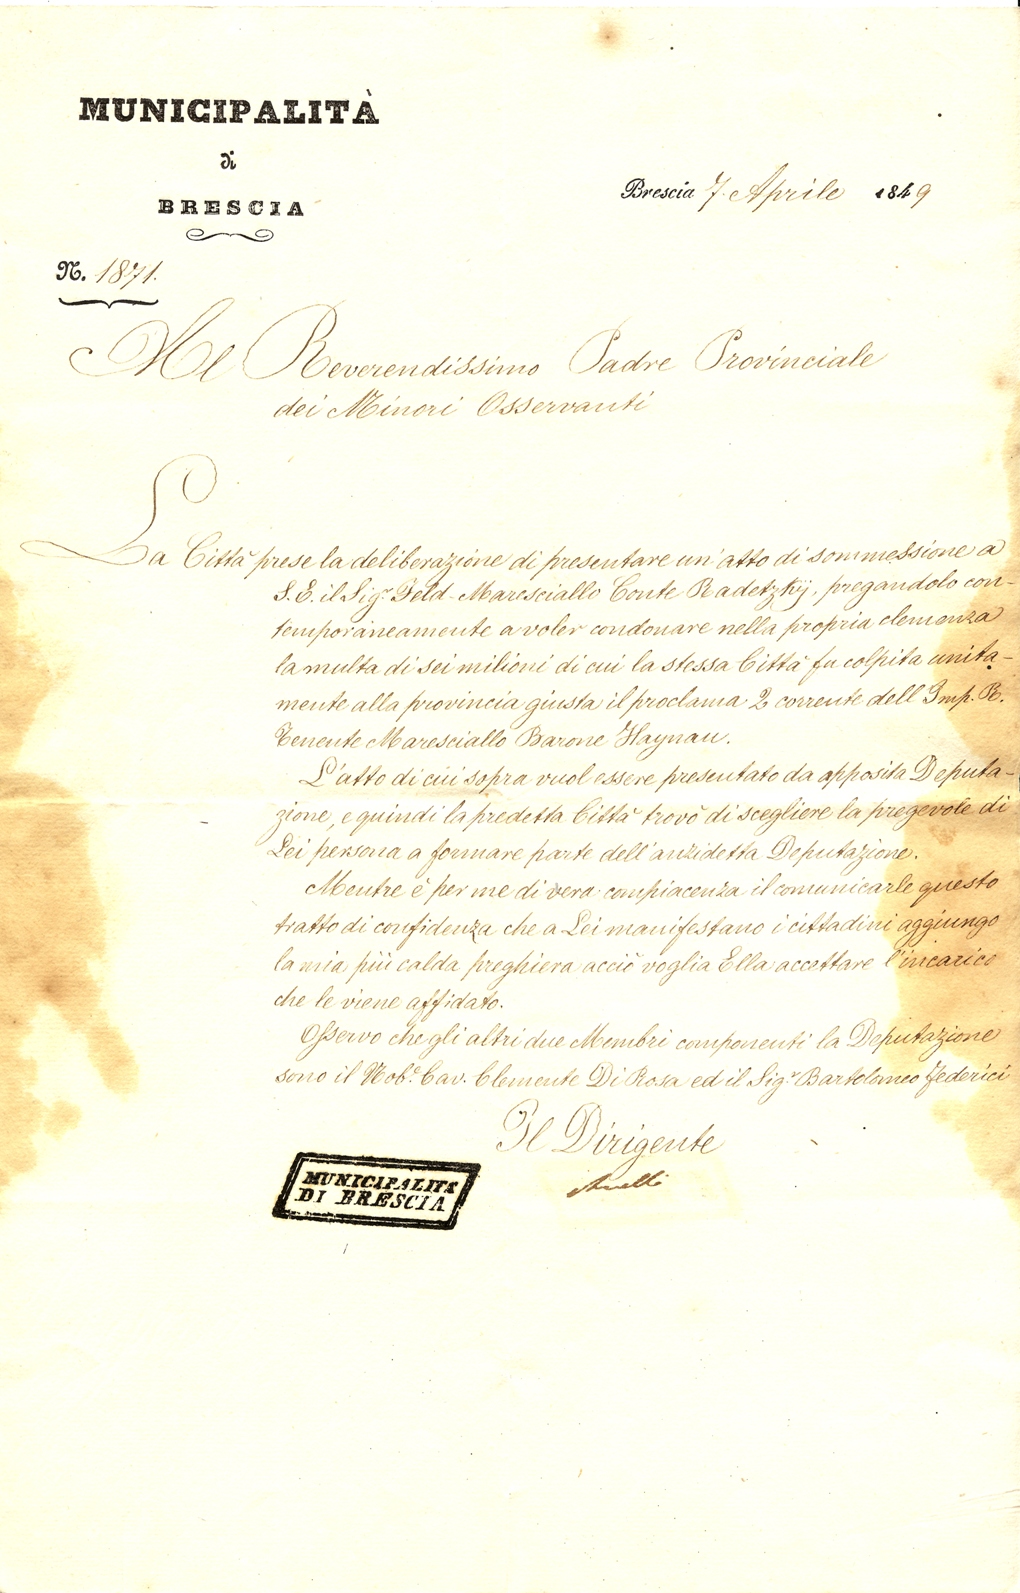 MUNICIPALITÀ
di
BRESCIA
Brescia 7. Aprile 1849
N. 1871.
Al Reverendissimo Padre Provinciale
dei Minori Osservanti
La Città prese la deliberazione di presentare un'atto di sommessione a
S. E. il Sigr. Feld-Maresciallo Conte Radetzkÿ, pregandolo con-
temporaneamente a voler condonare nella propria clemenza
la multa di sei milioni di cui la stessa Città fu colpita unita-
mente alla provincia giusta il proclama 2 corrente dell'Imp. R.
Tenente Maresciallo Barone Haynau.
L'atto di cui sopra vuol essere presentato da apposita Deputa-
zione, e quindi la predetta Città trovò di scegliere la pregevole di
Lei persona a formare parte dell'anzidetta Deputazione.
Mentre è per me di vera compiacenza il comunicarle questo
tratto di confidenza che a Lei manifestano i cittadini aggiungo
la mia più calda preghiera acciò voglia Ella accettare l'incarico
che le viene affidato.
Osservo che gli altri due Membri componenti la Deputazione
sono il Nob.e Cav. Clemente Di Rosa ed il Sigr. Bartolomeo Federici
Il Dirigente
MUNICIPALITÀ
DI BRESCIA